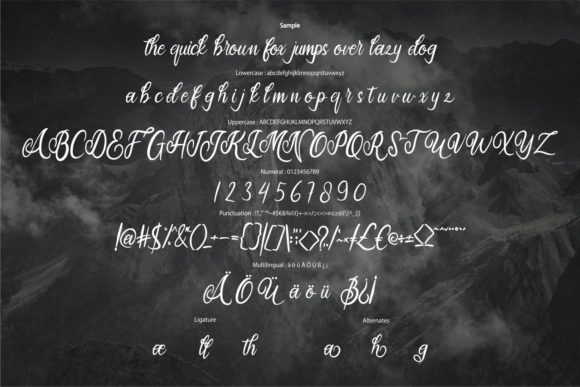 Sample
the quick brown fox jumps over lazy dog
Lowercase : abcdefghijklmnopqrstuvwxyz
a b c d e f g h i j k l m n o p q r s t u v w x y z
Uppercase : ABCDEFGHIJKLMNOPQRSTUVWXYZ
A B C D E F G H I J K L M N O P Q R S T U V W X Y Z
Numeral : 0123456789
1 2 3 4 5 6 7 8 9 0
Punctuation :
!@#$%&()_-+-={}[]|\:;"<>?,/~×
Multilingual : ä ö ü Ä Ö Ü ß ¿ ¡
Ä Ö Ü ä ö ü ß ¿ ¡
Ligature Alternates
æ tt th a h g